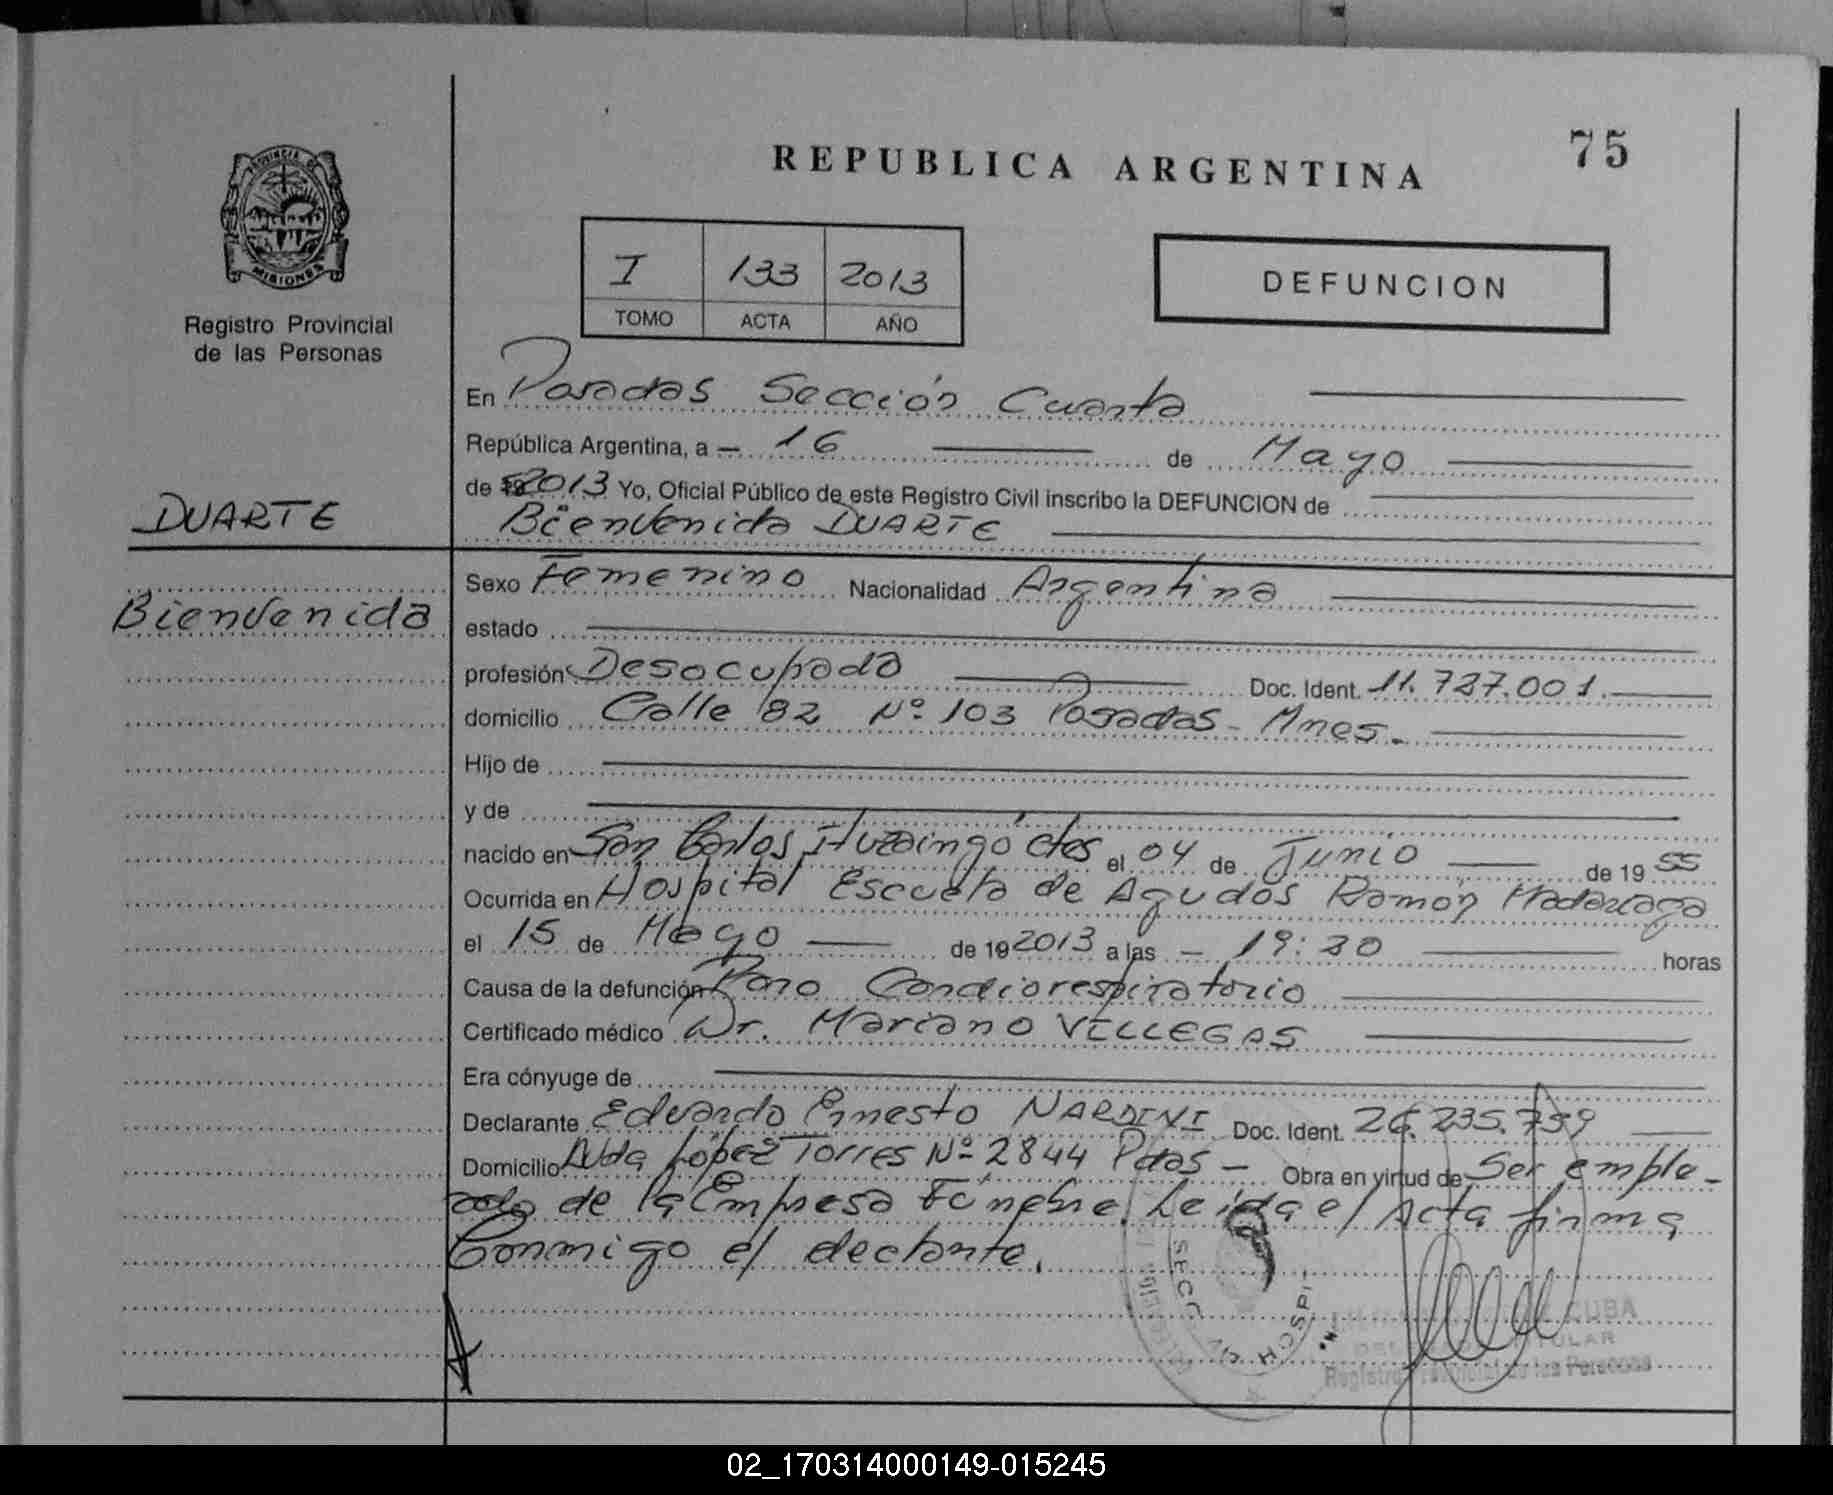 75
REPUBLICA ARGENTINA
PROVINCIA DE
MISIONES
Registro Provincial
de las Personas
I 133 2013
TOMO ACTA AÑO
DEFUNCION
En Posadas Sección Cuarta
República Argentina, a - 16 de Mayo
de 2013 Yo, Oficial Público de este Registro Civil inscribo la DEFUNCION de
DUARTE
Bienvenida DUARTE
Sexo Femenino Nacionalidad Argentina
Bienvenida
estado
profesión Desocupada Doc. Ident. 11.727.001.
domicilio Calle 82 Nº 103 Posadas - Mnes.
Hijo de
y de
nacido en San Carlos Ituzaingó Ctes el 04 de Junio de 19 55
Ocurrida en Hospital Escuela de Agudos Ramón Madariaga
el 15 de Mayo de 19 2013 a las - 19:30 horas
Causa de la defunción Paro Cardiorespiratorio
Certificado médico Dr. Mariano VILLEGAS
Era cónyuge de
Declarante Eduardo Ernesto NARDINI Doc. Ident. 26.235.759
Domicilio Avda López Torres Nº 2844 Pdas - Obra en virtud de Ser emple-
ado de la Empresa Fúnebre. Leida el Acta firma
Conmigo el declante.
SECC HOSPI
CUBA
Registro Provincial de las Personas
02_170314000149-015245